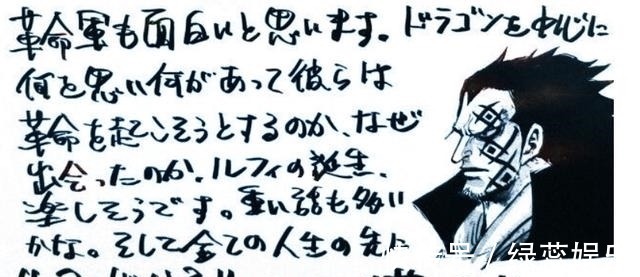 革命軍も面白いと思います。ドラゴンを中心に
何を思い何があって彼らは
革命を起こそうとするのか、なぜ
出会ったのか、ルフィの誕生、
楽しそうです。重い話も多い
かな。そして全ての人生の先に